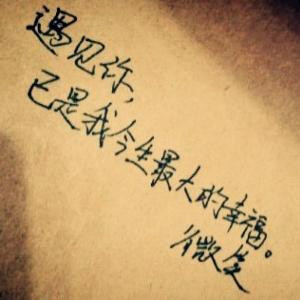 遇见你，
已是我今生最大的幸福。
微笑